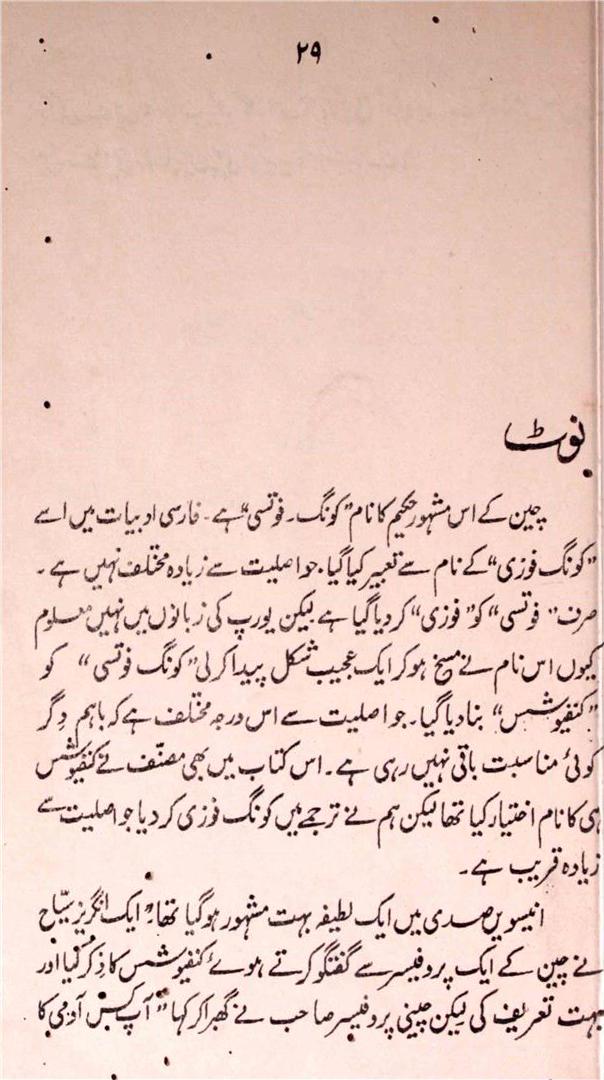 ۲۹
نوٹ
چین کے اس مشہور حکیم کا نام "کونگ۔ فوتسی" ہے۔ فارسی ادبیات میں اسے
"کونگ فوزی" کے نام سے تعبیر کیا گیا۔ جو اصلیت سے زیادہ مختلف نہیں ہے۔
صرف "فوتسی" کو "فوزی" کر دیا گیا ہے لیکن یورپ کی زبانوں میں نہیں معلوم
کیوں اس نام نے مسخ ہو کر ایک عجیب شکل پیدا کر لی "کونگ فوتسی" کو
"کنفیوشس" بنا دیا گیا۔ جو اصلیت سے اس درجہ مختلف ہے کہ باہم دگر
کوئی مناسبت باقی نہیں رہی ہے۔ اس کتاب میں بھی مصنّف نے کنفیوشس
ہی کا نام اختیار کیا تھا لیکن ہم نے ترجمے میں کونگ فوزی کر دیا جو اصلیت سے
زیادہ قریب ہے۔
انیسویں صدی میں ایک لطیفہ بہت مشہور ہو گیا تھا۔ ایک انگریز سیّاح
نے چین کے ایک پروفیسر سے گفتگو کرتے ہوئے کنفیوشس کا ذکر کیا اور
بہت تعریف کی لیکن چینی پروفیسر صاحب نے گھبرا کر کہا "آپ کس آدمی کا